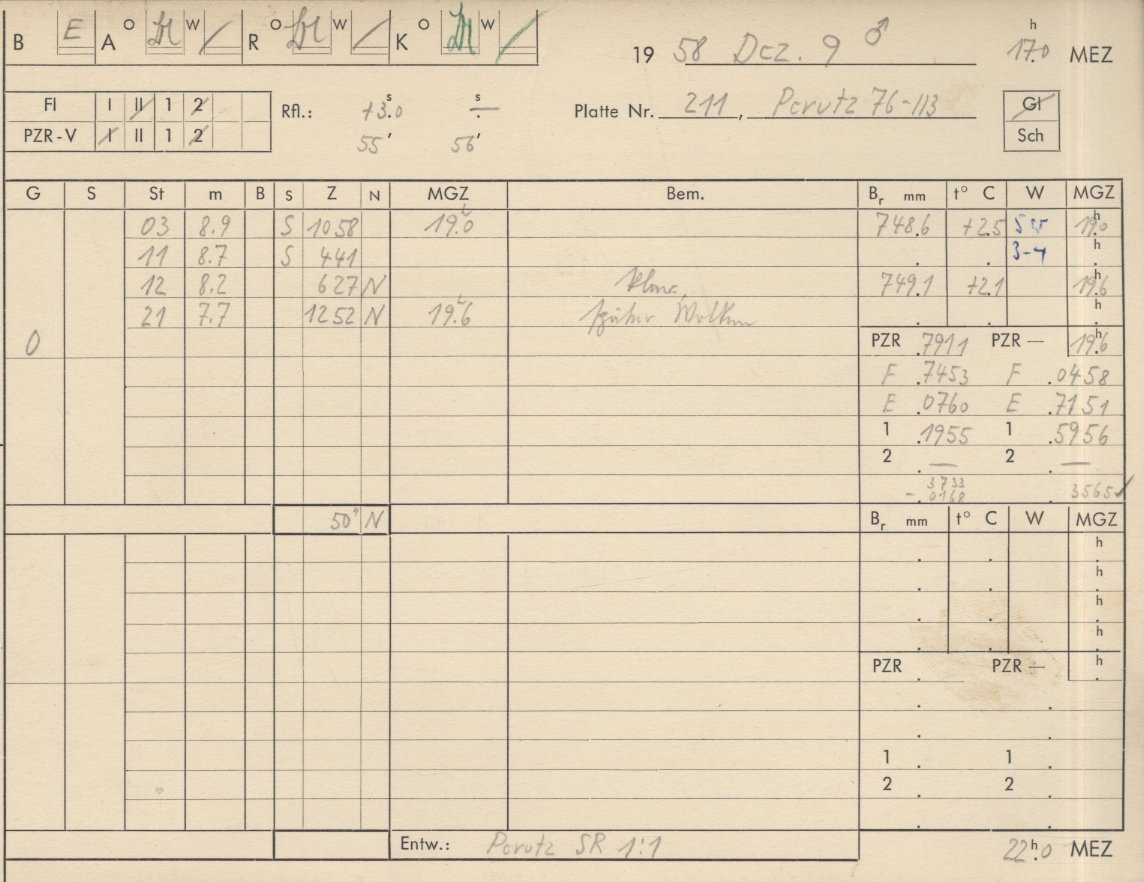 B E A O W R O W K O W
19 58 Dez. 9 ♂ 17h.0 MEZ
Fl I II 1 2
PZR-V I II 1 2
Rfl.: +3s.0
55' 56'
Platte Nr. 211, Perutz 76-113
Gl
Sch
G S St m B S Z N MGZ Bem. Br mm t° C W MGZ
03 8.9 S 1058 19.0 748.6 +2.5 SW 19h.0
11 8.7 S 441 3-4 h
12 8.2 627 N 749.1 +2.1 19h.6
21 7.7 1252 N 19.6 später Wolken h
0 PZR .7911 PZR — 19h.6
F .7453 F .0458
E .0760 E .7151
1 .1955 1 .5956
2 — 2 —
3733
- 0168 3565
50" N Br mm t° C W MGZ
h
h
h
h
PZR PZR — h
1 1
2 2
Entw.: Perutz SR 1:1 22h.0 MEZ